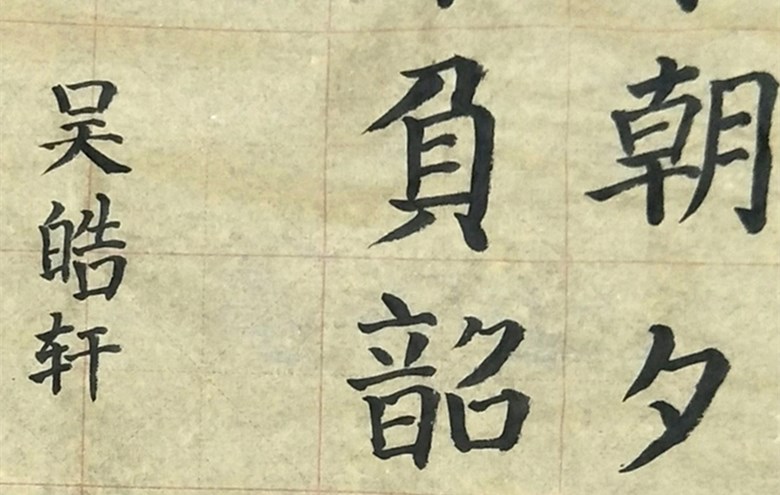 朝夕
負韶
吴皓轩